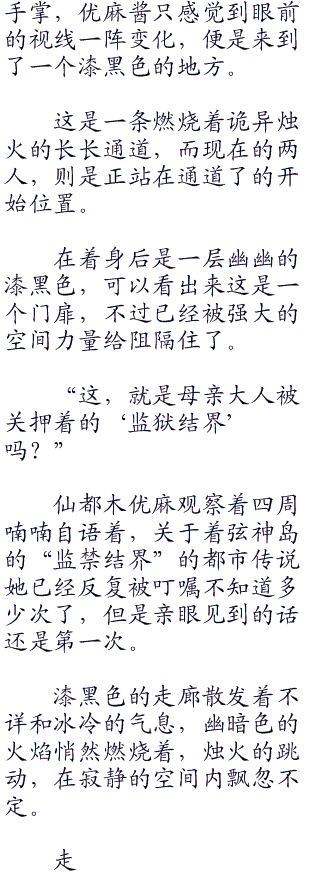 手掌，优麻酱只感觉到眼前
的视线一阵变化，便是来到
了一个漆黑色的地方。
这是一条燃烧着诡异烛
火的长长通道，而现在的两
人，则是正站在通道了的开
始位置。
在着身后是一层幽幽的
漆黑色，可以看出来这是一
个门扉，不过已经被强大的
空间力量给阻隔住了。
“这，就是母亲大人被
关押着的‘监狱结界’
吗？”
仙都木优麻观察着四周
喃喃自语着，关于着弦神岛
的“监禁结界”的都市传说
她已经反复被叮嘱不知道多
少次了，但是亲眼见到的话
还是第一次。
漆黑色的走廊散发着不
详和冰冷的气息，幽暗色的
火焰悄然燃烧着，烛火的跳
动，在寂静的空间内飘忽不
定。
走